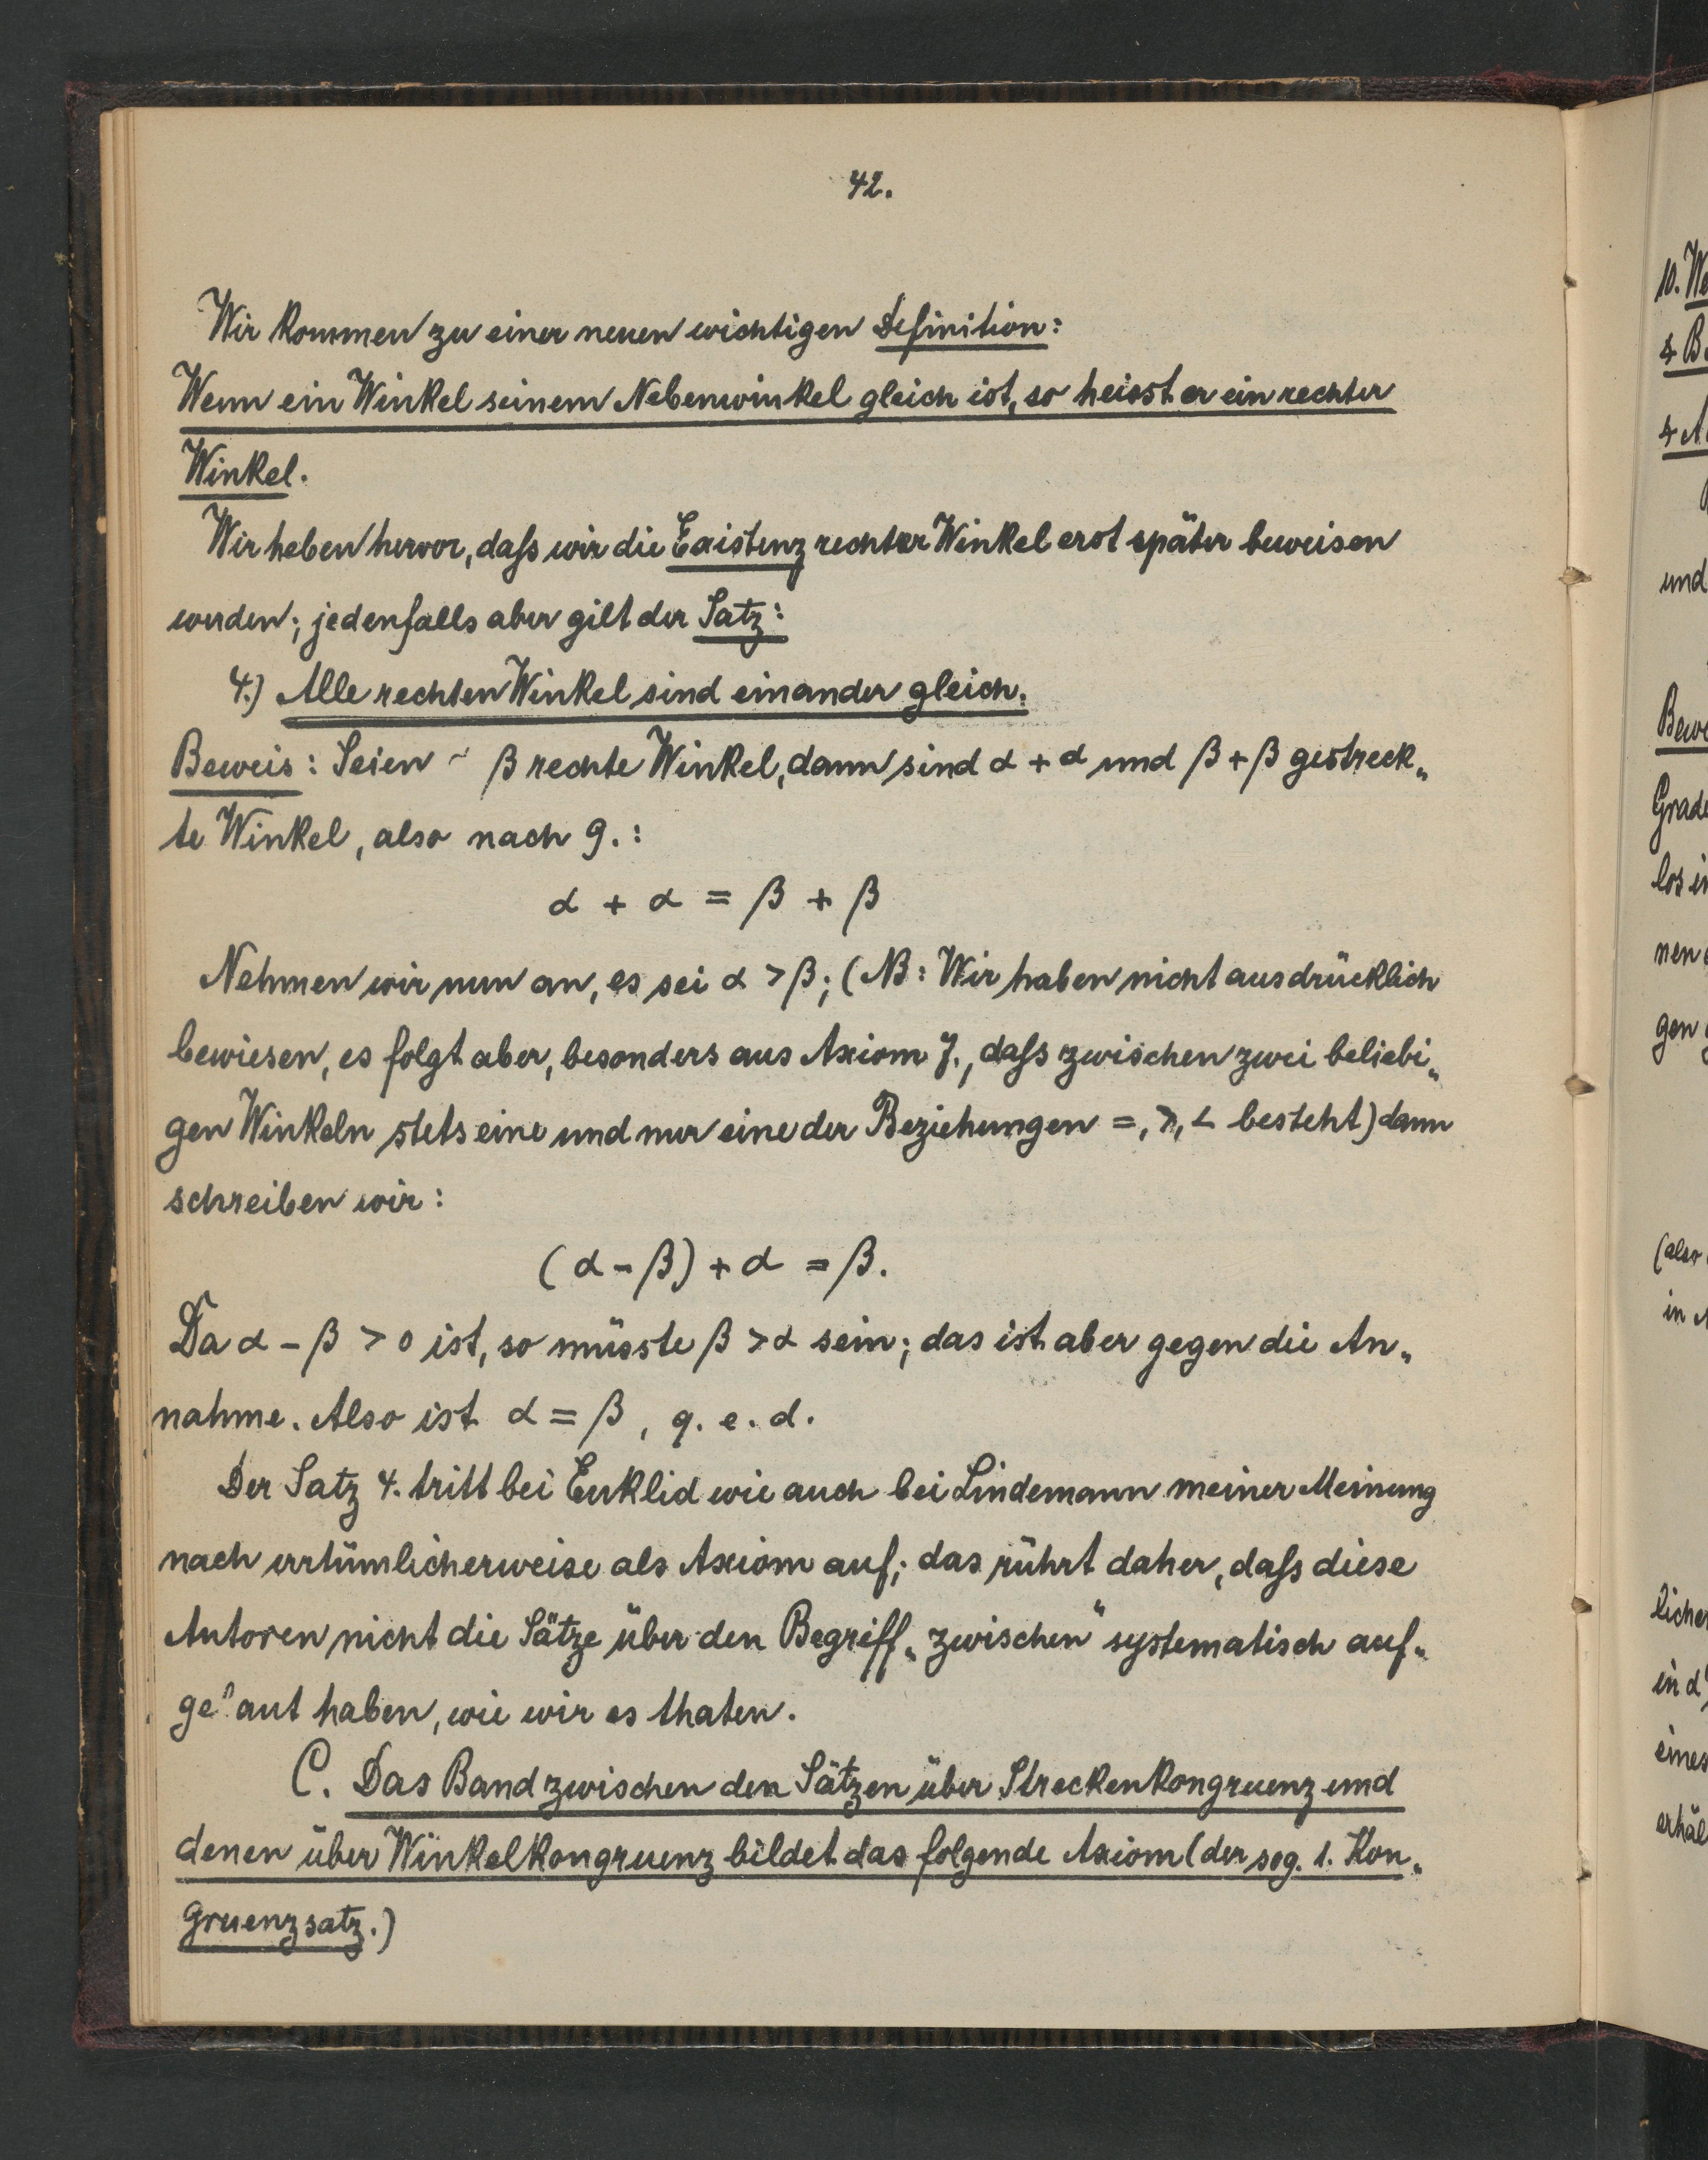 42.
Wir kommen zu einer neuen wichtigen Definition:
Wenn ein Winkel seinem Nebenwinkel gleich ist, so heisst er ein rechter
Winkel.
Wir heben hervor, daſs wir die Existenz rechter Winkel erst später beweisen
werden; jedenfalls aber gilt der Satz:
4.) Alle rechten Winkel sind einander gleich.
Beweis: Seien β rechte Winkel, dann sind α + α und β + β gestreck„
te Winkel, also nach 9.:
α + α = β + β
Nehmen wir nun an, es sei α > β; (NB: Wir haben nicht ausdrücklich
bewiesen, es folgt aber, besonders aus Axiom 7., daſs zwischen zwei beliebi„
gen Winkeln stets eine und nur eine der Beziehungen =, >, < besteht) dann
schreiben wir:
(α - β) + α = β.
Da α - β > 0 ist, so müsste β > α sein; das ist aber gegen die An„
nahme. Also ist α = β, q. e. d.
Der Satz 4. tritt bei Euklid wie auch bei Lindemann meiner Meinung
nach irrtümlicherweise als Axiom auf; das rührt daher, daſs diese
Autoren nicht die Sätze über den Begriff „zwischen“ systematisch auf„
ge aut haben, wie wir es thaten.
C. Das Band zwischen den Sätzen über Streckenkongruenz und
denen über Winkelkongruenz bildet das folgende Axiom (der sog. 1. Kon„
gruenzsatz.)
10. We
und
Bewe
Grade
los in
nen
gen
(also
in
licher
in d
eines
erhäl